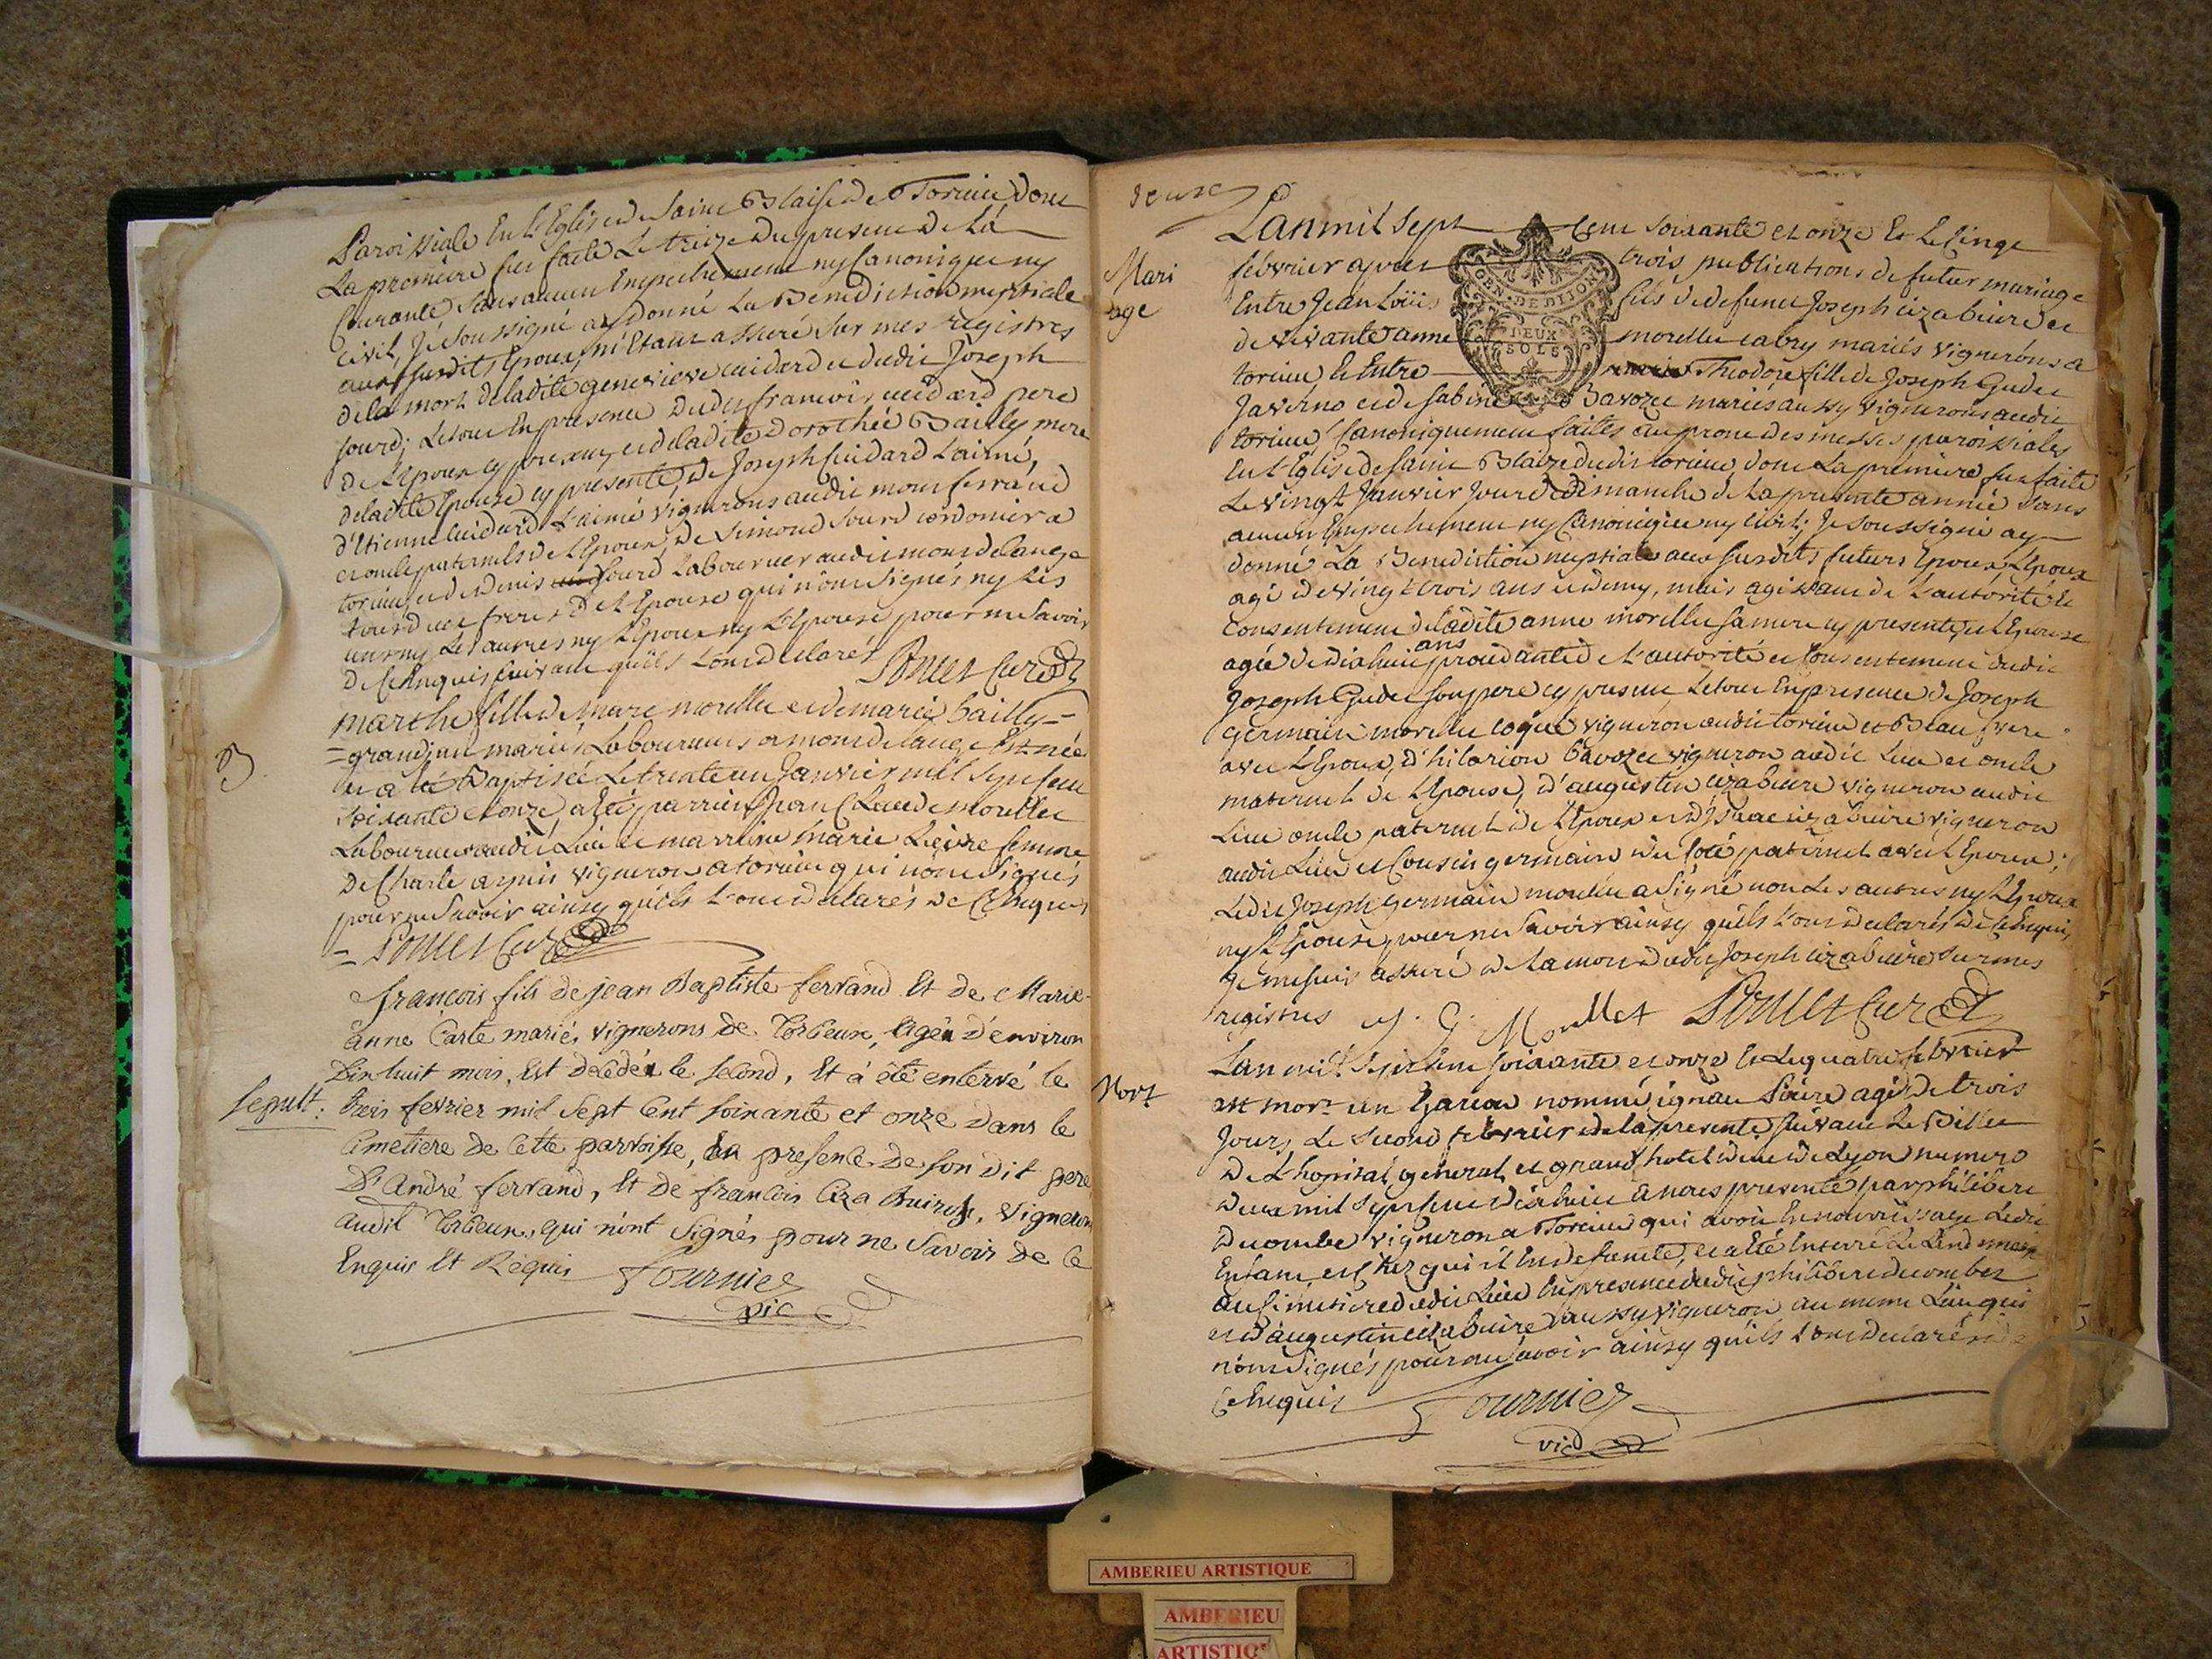 Paroissiale En L'Eglise de Saint Blaise de Torcieu dont
La premiere fut faite Le treize du present de La
Courante sans aucun Empechement ny Canonique ny
Civil, Je soussigné ay donné La Benediction nuptiale
aux susdits Epoux, m'Etant assuré sur mes registres
de la mort de ladite genevieve cuidard et dudit Joseph
sourd; Le tout En presence dudit francois cuidard pere
de L'Epoux cy present, et de ladite Dorothée Bailly mere
de ladite Epouse cy presente, de Joseph Cuidard L'ainé,
d'Etienne Cuidard L'ainé vignerons audit montferrand
et oncle paternels de L'Epoux, de Simond Sourd cordonier a
torcieu, et de Denis sourd Laboureur audit mont de lange
tous deux freres de L'Epouse qui n'ont signés, ny les
uns ny Les autres ny L'Epoux ny L'Epouse pour ne Savoir
de ce Enquis suivant qu'ils L'ont declarés Poncet Curé
B marthe fille de Marc morellet et de marie bailly =
= grandjan mariés Laboureurs a mont de lange Est née
et a été Baptisée Le trente un Janvier mil Sept Cent
Soixante et onze, a Eté parrien Jean Claude morellet
Laboureur audit Lieu et marraine marie Lievre femme
de Charle vigneron a torcieu qui n'ont Signés
pour ne Savoir ainsy qu'ils L'ont declarés de ce Enquis
= Poncet Curé
françois fils de jean Baptiste ferrand Et de Marie-
anne Carte mariés vignerons de Torcieux, agé d'environ
Dix huit mois, Est décédé le second, Et a été enterré le
Sepult: trois fevrier mil Sept Cent soixante et onze dans le
Cimetiere de cette parroisse, En presence de son dit pere
D'André ferrand, Et de francois Ciza Buiron, vigneron
audit Torcieux, qui n'ont Signés pour ne Savoir de ce
Enquis Et Requis Fournier
vic
deuxe
L'an mil Sept Cent Soixante et onze Et Le cinqe
Mari fébvrier apres trois publications de futur mariage
age Entre Jean Loüis fils de defunct Joseph cizabuire et
de vivante anne morellet cabry mariés vignerons a
torcieu, Et Entre Theodore fille de Joseph Gudet
Javerno et de Sabine Bavozet mariés aussy vignerons audit
torcieu Canoniquement faites au prone des messes paroissiales
En L'Eglise de Saint Blaize dudit torcieu, dont La premiere fut faite
Le vingt Janvier Jour de dimanche de La presente année Sans
aucun Empechement ny Canonique ny civil; Je soussigné ay
donné La Benediction nuptiale aux susdits futurs Epoux, L'Epoux
agé de vingt trois ans et demy, mais agissant de L'autorité et
Consentement de ladite anne morellet sa mere cy presente, et L'Epouse
agée de dixhuit ans procedante de L'autorité et Consentement dudit
Joseph Gudet son pere cy present, Le tout En presence de Joseph
Germain morellet coque vigneron audit torcieu et Beau frere
avec L'Epoux, d'hilarion bavozet vigneron audit Lieu et oncle
maternel de L'Epouse, d'augustin cizabuire vigneron audit
Lieu oncle paternel de L'Epoux et d'Isaac cizabuire vigneron
audit Lieu et Cousin germain du Coté paternel avec L'Epoux;
Ledit Joseph Germain morellet a Signé non Les autres ny L'Epoux
ny L'Epouse, pour ne Savoir ainsy qu'ils L'ont declarés de ce Enquis,
Je me suis assuré de La mort dudit Joseph cizabuire Sur mes
registres J. G. Morellet Poncet Curé
L'an mil Sept Cent soixante et onze Et Le quatre febvrier
Mort est mort un Garcon nommé ignace agé de trois
Jours, Le Second febvrier de la presente, suivant Le Billet
de L'hopital general et grand hotel dieu de Lyon numero
deux mil Sept Cent dixhuit a nous presenté par philibere
ducombe vigneron a Torcieu qui avoit En nourrissage Ledit
Enfant, et chez qui il Est defunté, et a Eté Enterré Le Lendemain
au Cimetiere dudit Lieu En presence dudit philibere ducombet
et d'augustin cizabuire aussy vigneron au meme Lieu qui
n'ont Signés pour ne Savoir ainsy qu'ils L'ont declarés de
Ce Enquis Fournier
vic
GEN. DE DIJON
DEUX
SOLS
AMBERIEU ARTISTIQUE
AMBERIEU
ARTISTIQ